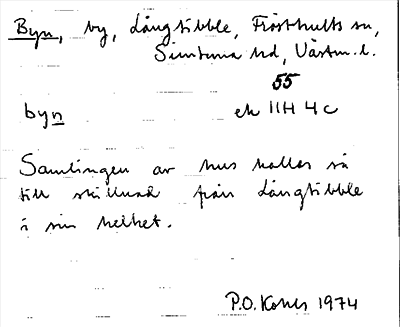 Byn, by, Långtibble, Frösthults sn,
Simtuna hd, Västm. l.
55
byn ek 11H 4c
Samlingen av hus kallas så
till skillnad från Långtibble
i sin helhet.
P.O. 1974